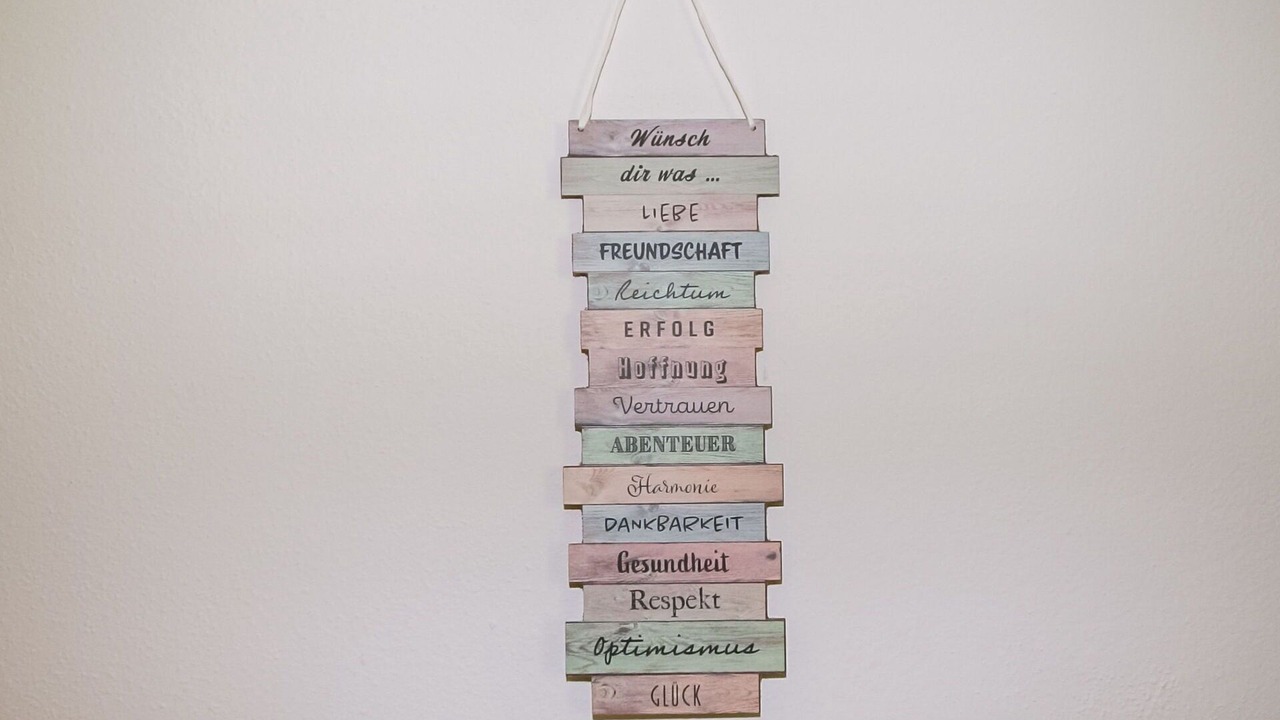 Wünsch
dir was ...
LIEBE
FREUNDSCHAFT
Reichtum
ERFOLG
Hoffnung
Vertrauen
ABENTEUER
Harmonie
DANKBARKEIT
Gesundheit
Respekt
Optimismus
GLÜCK